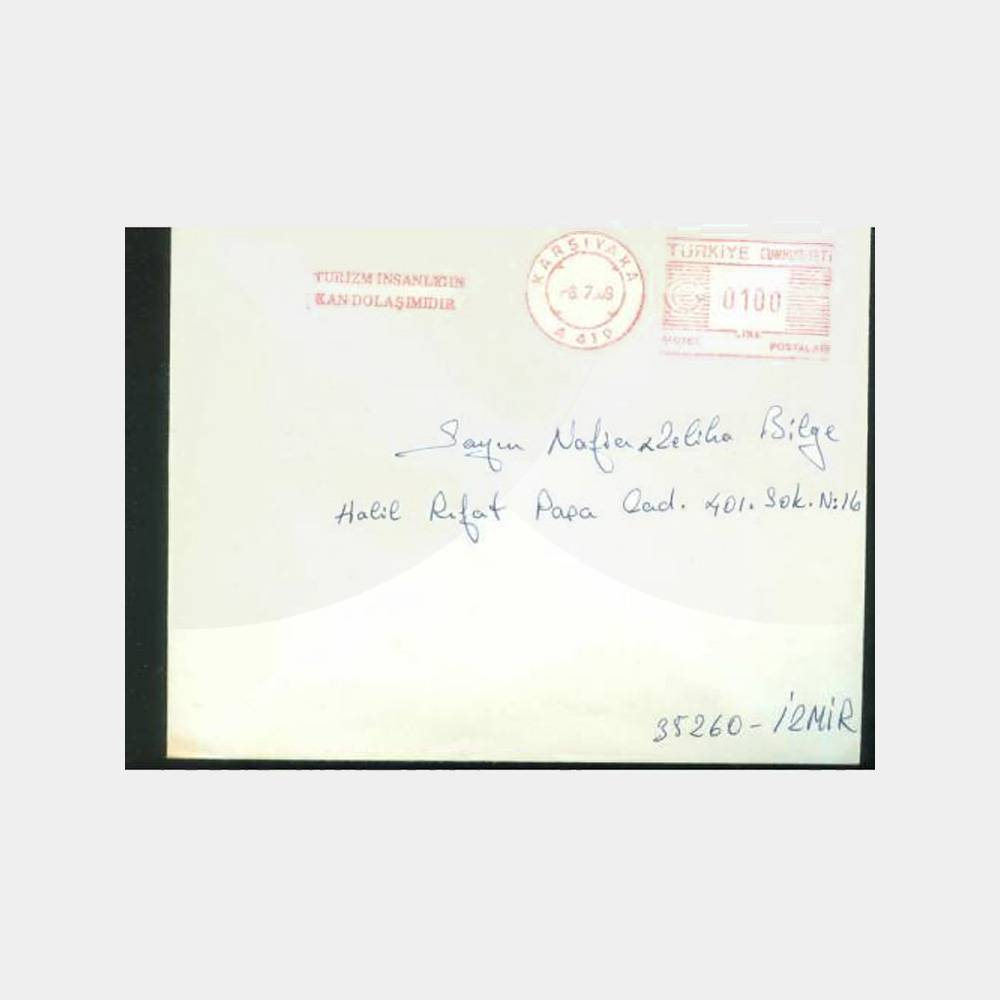 TURİZM İNSANLIĞIN
KAN DOLAŞIMIDIR
KARŞIYAKA
-6.7.
A 419
TÜRKİYE CUMHURİYETİ
0100
LİRA
POSTALARI
Sayın Nafia Zeliha Bilge
Halil Rıfat Paşa Cad. 401. Sok. N:16
35260 - İZMİR